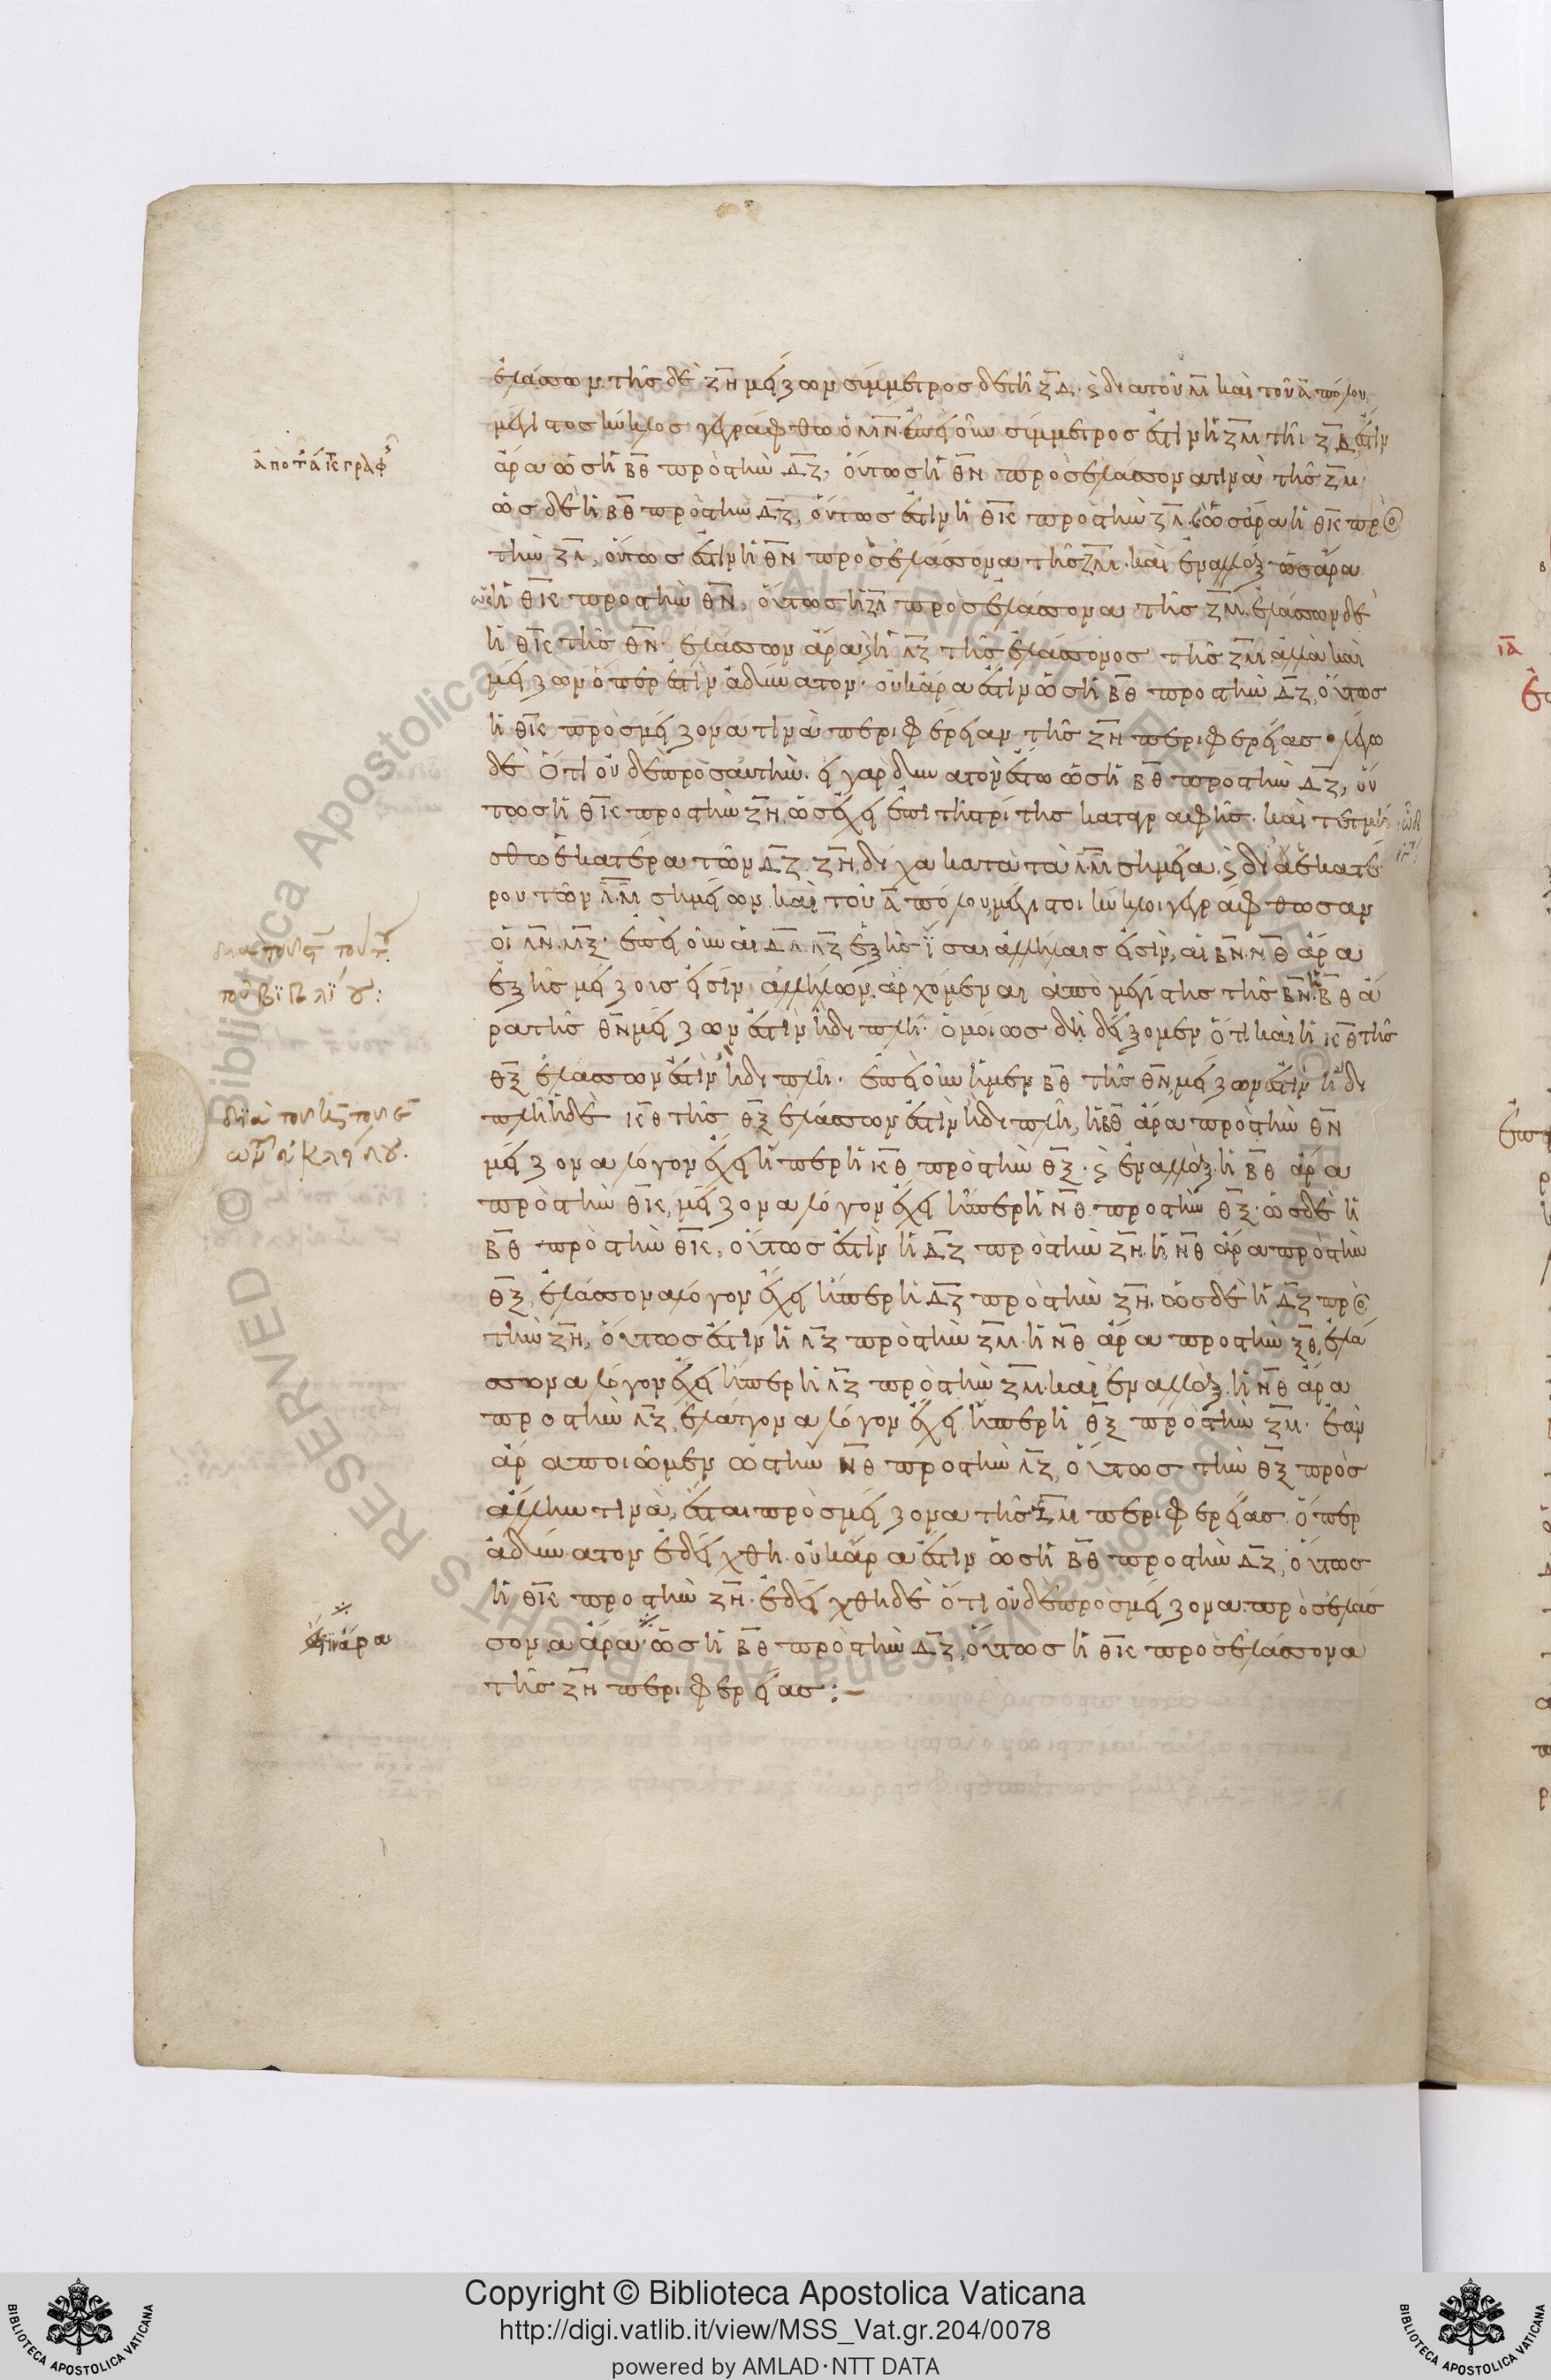 ἐλάσσων τῆς δὲ ΖΗ μείζων σύμμετρος δὲ τῆ ΖΔ· ϛ διὰ τοῦ Μ καὶ τοῦ Α πόλου
μέγιστος κύκλος γεγράφθω ὁ ΜΝ· ἐπεὶ οὖν σύμμετρός ἐστιν ἡ ΖΜ τῆι ΖΔ ἔστιν
ἄρα ὡς ἡ ΒΘ πρὸς τὴν ΔΖ, οὕτως ἡ ΘΝ πρὸς ἐλάσσονα τινὰ τῆς ΖΜ·
ὡς δὲ ἡ ΒΘ πρὸς τὴν ΔΖ, οὕτως ἐστὶν ἡ ΘΚ πρὸς τὴν ΖΛ. ϛ ὡς ἄρα ἡ ΘΚ πρὸς
τὴν ΖΛ, οὕτως ἐστὶν ἡ ΘΝ πρὸς ἐλάσσονα τῆς ΖΜ. καὶ ἐναλλὰξ ὡς ἄρα
ἡ ΘΚ πρὸς τὴν ΘΝ, οὕτως ἡ ΖΛ πρὸς ἐλάσσονα τῆς ΖΜ. ἐλάσσων δὲ
ἡ ΘΚ τῆς ΘΝ· ἐλάσσων ἄρα ϛ ἡ ΛΖ τῆς ἐλάσσονος τῆς ΖΜ ἀλλὰ καὶ
μείζων ὅπερ ἐστὶν ἀδύνατον· οὐκ ἄρα ἐστὶν ὡς ἡ ΒΘ πρὸς τὴν ΔΖ, οὕτως
ἡ ΘΚ πρὸς μείζονα τινὰ περιφέρειαν τῆς ΖΗ περιφερείας · λέγω
δὲ ὅτι οὐδὲ πρὸς αὐτήν. εἰ γὰρ δυνατὸν ἔστω ὡς ἡ ΒΘ πρὸς τὴν ΔΖ, οὕ
τως ἡ ΘΚ πρὸς τὴν ΖΗ, ὡς ἔχει ἐπὶ τῆς τρίτης καταγραφῆς· καὶ τετμή
σθω ἑκατέρα τῶν ΔΖ. ΖΗ, δίχα κατὰ τὰ Λ.Μ σημεῖα. ϛ δι ἑκατέ
ρου τῶν Λ.Μ σημείων καὶ τοῦ Α πόλου μέγιστοι κύκλοι γεγράφθωσαν
οἱ ΛΝ.ΜΞ· ἐπεὶ οὖν αἱ ΔΛ ΛΖ ἑξῆς ἴσαι ἀλλήλαις εἰσὶν, αἱ ΒΝ.ΝΘ ἄρα
ἑξῆς μείζοις εἰσὶν ἀλλήλων. ἀρχόμεναι ἀπὸ μεγίστης τῆς ΒΝ. ἡ ΒΘ ἄ
ρα τῆς ΘΝ μείζων ἐστὶν ἢ διπλῆ· ὁμοίως δὴ δείξομεν ὅτι καὶ ἡ ΚΘ τῆς
ΘΞ ἐλάσσων ἐστὶν ἢ διπλῆ. ἐπεὶ οὖν ἡ μὲν ΒΘ τῆς ΘΝ, μείζων ἐστὶν ἢ δι
πλῆ ἡ δὲ ΚΘ τῆς ΘΞ ἐλάσσων ἐστὶν ἢ διπλῆ, ἡ ΒΘ ἄρα πρὸς τὴν ΘΝ
μείζονα λόγον ἔχει ἤπερ ἡ ΚΘ πρὸς τὴν ΘΞ. ϛ ἐναλλάξ. ἡ ΒΘ ἄρα
πρὸς τὴν ΘΚ, μείζονα λόγον ἔχει ἤπερ ἡ ΝΘ πρὸς τὴν ΘΞ· ὡς δὲ ἡ
ΒΘ πρὸς τὴν ΘΚ, οὕτως ἐστὶν ἡ ΔΖ πρὸς τὴν ΖΗ. ἡ ΝΘ ἄρα πρὸς τὴν
ΘΞ, ἐλάσσονα λόγον ἔχει ἤπερ ἡ ΔΖ πρὸς τὴν ΖΗ. ὡς δὲ ἡ ΔΖ πρὸς
τὴν ΖΗ, οὕτως ἐστὶν ἡ ΛΖ πρὸς τὴν ΖΜ. ἡ ΝΘ ἄρα πρὸς τὴν ΞΘ, ἐλά
σσονα λόγον ἔχει ἤπερ ἡ ΛΖ πρὸς τὴν ΖΜ. καὶ ἐναλλάξ. ἡ ΝΘ ἄρα
πρὸς τὴν ΛΖ, ἐλάττονα λόγον ἔχει ἤπερ ἡ ΘΞ πρὸς τὴν ΖΜ. ἐὰν
ἄρα ποιῶμεν ὡς τὴν ΝΘ πρὸς τὴν ΛΖ, οὕτως τὴν ΘΞ πρὸς
ἄλλην τινὰ, ἔσται πρὸς μείζονα τῆς ΖΜ περιφερείας. ὅπερ
ἀδύνατον ἐδείχθη. οὐκ ἄρα ἐστὶν ὡς ἡ ΒΘ πρὸς τὴν ΔΖ, οὕτως
ἡ ΘΚ πρὸς τὴν ΖΗ. ἐδείχθη δὲ ὅτι οὐδὲ πρὸς μείζονα. πρὸς ἐλάσ
σονα ἄρα· ὡς ἡ ΒΘ πρὸς τὴν ΔΖ, οὕτως ἡ ΘΚ πρὸς ἐλάσσονα
τῆς ΖΗ περιφερείας :–
διὰ
τοῦ βϊβλΐου:
διὰ
ἐστὶν ἄρα
Copyright © Biblioteca Apostolica Vaticana
http://digi.vatlib.it/view/MSS_Vat.gr.204/0078
powered by AMLAD·NTT DATA
BIBLIOTECA APOSTOLICA VATICANA
BIBLIOTECA APOSTOLICA VATICANA